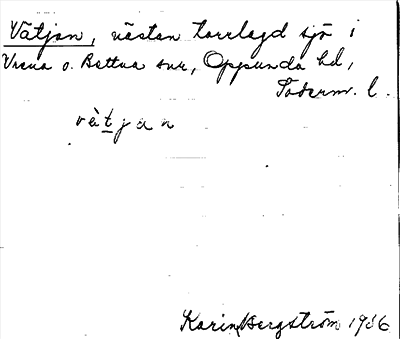 Vätjan, nästan torrlagd sjö i
Vrena o. Bettna snr, Oppunda hd,
Söderm. l.
vätjan
Karin Bergström 1936